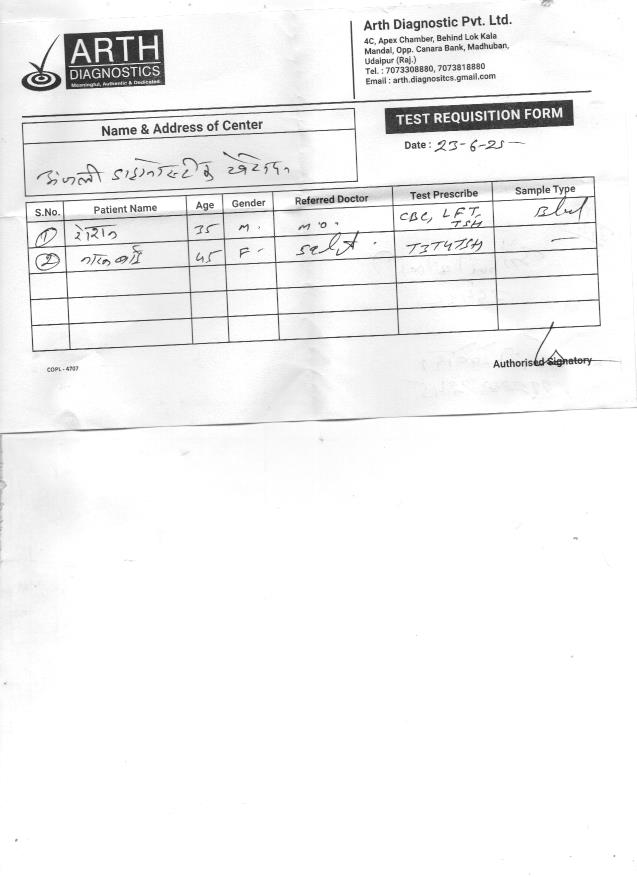 ARTH
DIAGNOSTICS
Meaningful, Authentic & Dedicated
Arth Diagnostic Pvt. Ltd.
4C, Apex Chamber, Behind Lok Kala
Mandal, Opp. Canara Bank, Madhuban,
Udaipur (Raj.)
Tel. : 7073308880, 7073818880
Email : arth.diagnositcs.gmail.com
TEST REQUISITION FORM
Name & Address of Center
Date : 23-6-25
S.No. Patient Name Age Gender Referred Doctor Test Prescribe Sample Type
1 35 M. M O. CBC, LFT, TSH
2 45 F- T3T4TSH —
Authorised Signatory
COPL - 4707